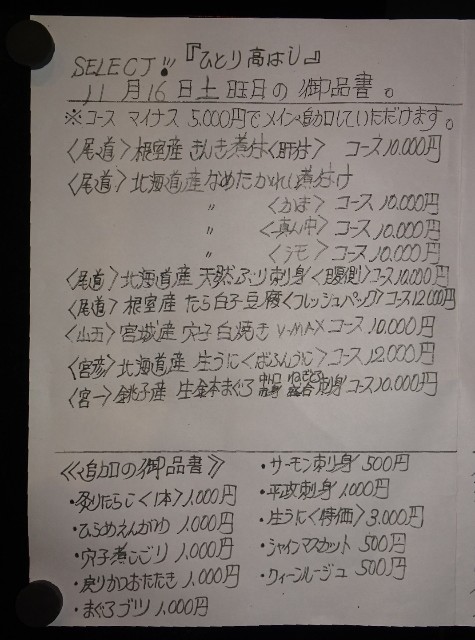 SELECT!! 『ひとり高はし』
11月16日土旺日の御品書。
※コース マイナス 5,000円でメイン追加していただけます。
〈尾道〉根室産 きんき煮付〈肝付〉 コース10,000円
〈尾道〉北海道産なめたかれい煮付け
〃 〈かま〉 コース10,000円
〃 〈真ん中〉 コース10,000円
〃 〈ラモ〉 コース10,000円
〈尾道〉北海道産 天然ぶり刺身〈腹側〉コース10,000円
〈尾道〉根室産 たら白子豆腐〈フレッシュパック〉コース12,000円
〈山五〉宮城産 穴子白焼き V-MAX コース10,000円
〈宮彦〉北海道産 生うに〈ばふんうに〉コース12,000円
〈宮一〉銚子産 生本まぐろ 刺身 コース10,000円
《追加の御品書》
・炙りたらこ〈1本〉1,000円
・ひらめえんがわ 1,000円
・穴子煮こごり 1,000円
・戻りかつおたたき 1,000円
・まぐろブツ 1,000円
・サーモン刺身 500円
・平政刺身 1,000円
・生うに〈特価〉3,000円
・シャインマスカット 500円
・クィーンルージュ 500円